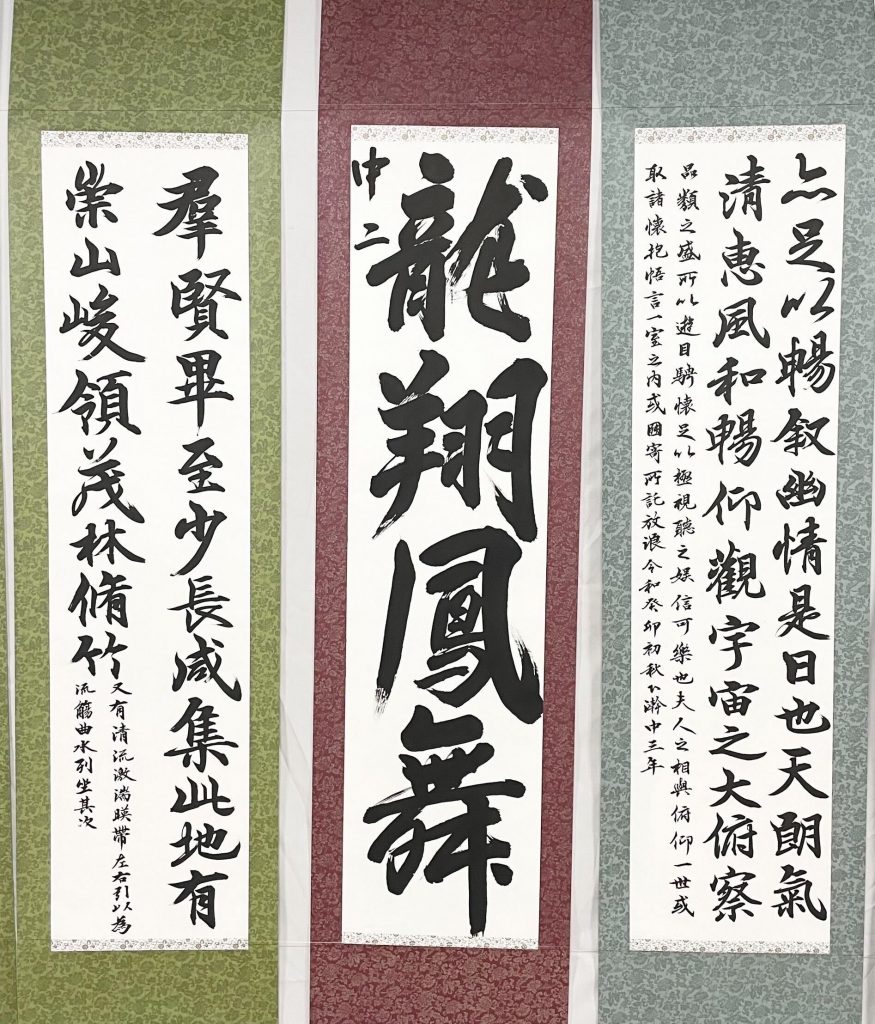 亦足以暢叙幽情是日也天朗氣
清惠風和暢仰觀宇宙之大俯察
品類之盛所以遊目騁懷足以極視聽之娯信可樂也夫人之相與俯仰一世或
取諸懷抱悟言一室之内或因寄所託放浪令和癸卯初秋中三年
龍翔鳳舞
中二
羣賢畢至少長咸集此地有
崇山峻領茂林脩竹
又有清流激湍暎帶左右引以為
流觴曲水列坐其次